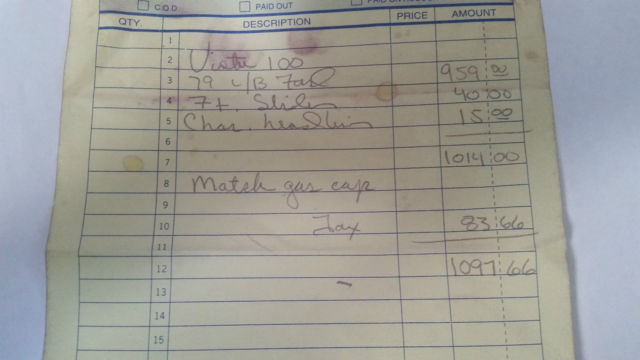 C.O.D. PAID OUT
QTY. DESCRIPTION PRICE AMOUNT
1
2 Vista 100 959.00
3 79 L/B Ford 40.00
4 7+. Slider 15.00
5 Char. headliner
6
7 1014.00
8 Match gas cap
9
10 Tax 83.66
11
12 1097.66
13
14
15